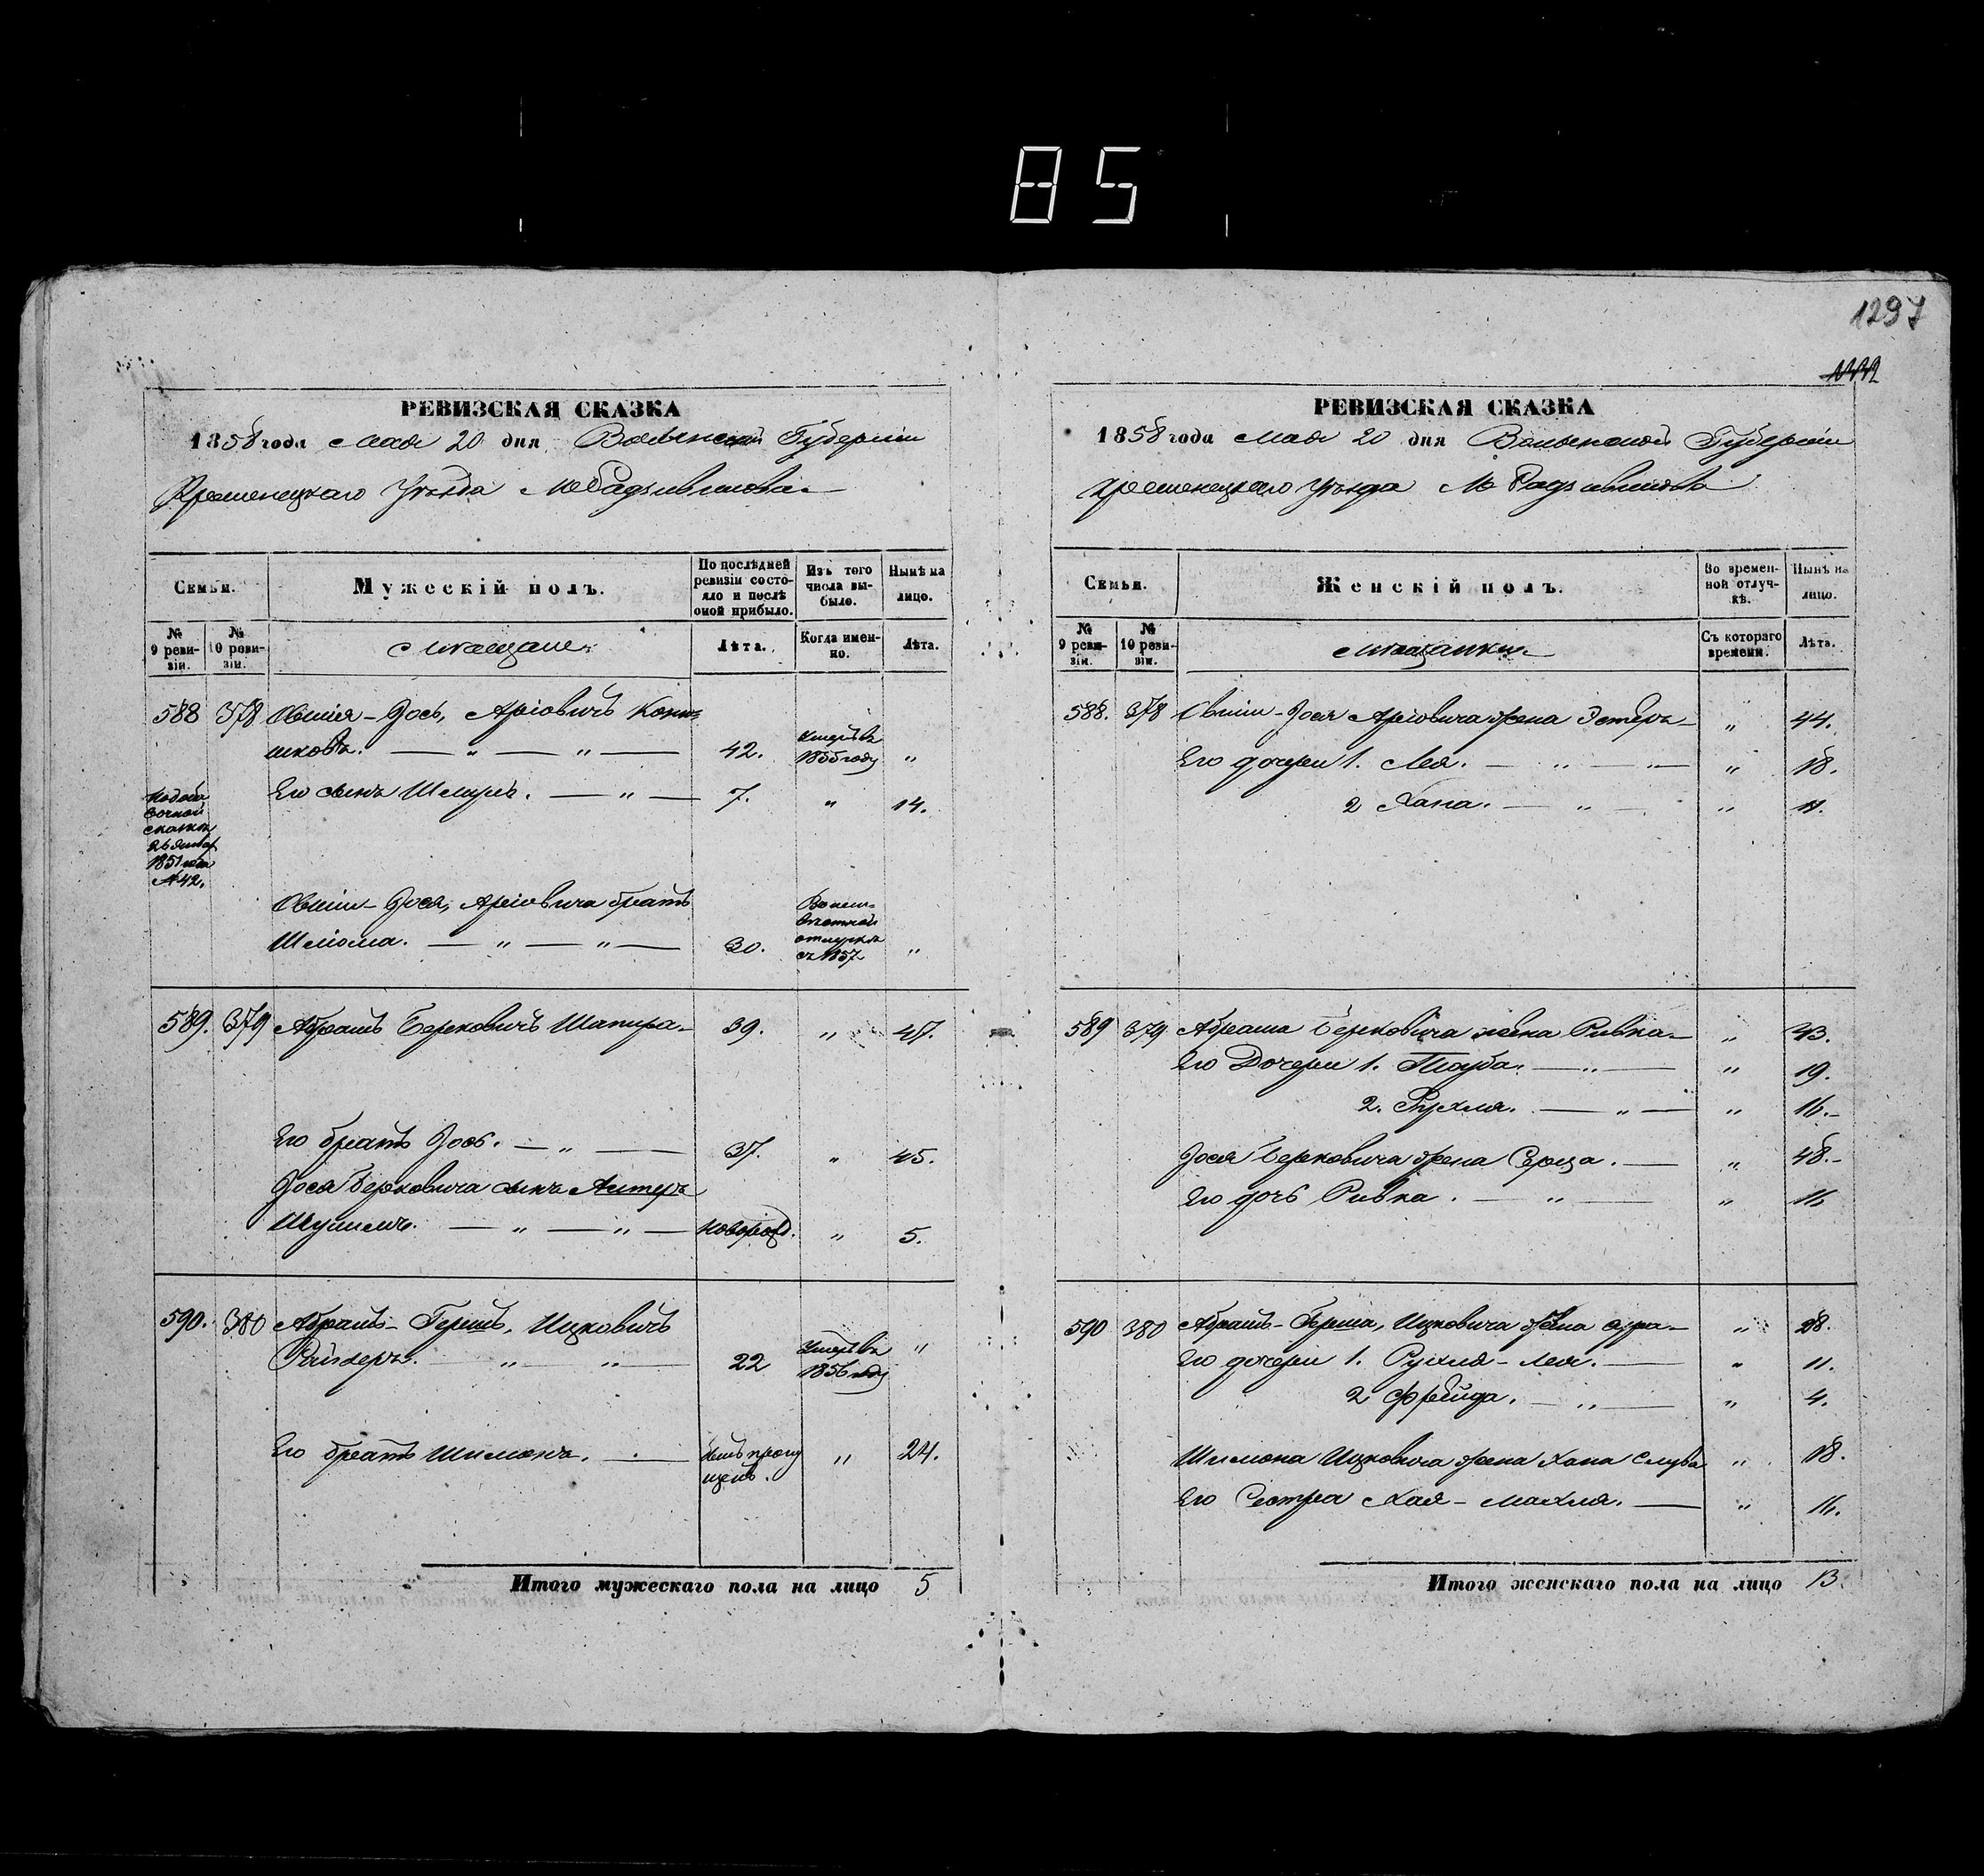 85
1297
РЕВИЗСКАЯ СКАЗКА
1858 года Мая 20 дня Волынской Губерніи
Кременецкаго Уѣзда М. Радзивилова
Семьи.
Мужескій полъ.
По послѣдней ревизіи состояло и послѣ оной прибыло.
Изъ того числа выбыло.
Нынѣ на лицо.
№ 9 ревизіи.
№ 10 ревизіи.
Мѣщане
Лѣта.
Когда именно.
Лѣта.
588 378 Овшія-Іось, Аріовичъ
— " — " — 42. Умеръ въ 1855 году "
Его сынъ Шмуль. — " — 7. " 14.
сказкѣ
1851 года
№ 42.
Овшіи-Іося, Аріовича братъ
Шліома. — " — " — 30. отлучкѣ съ 1857 "
589. 379 Абрамъ Берковичъ Шапира 39. " 47.
Его братъ Іось. — " — 37. " 45.
Іося Берковича сынъ Алтеръ
— " — " — новорожд. " 5.
590. 380 Абрамъ-Гершъ, Ицковичъ
" " — 22 Умеръ въ 1856 году "
Его братъ Шимонъ. — былъ пропущенъ. " 24.
Итого мужескаго пола на лицо 5
РЕВИЗСКАЯ СКАЗКА
1858 года Мая 20 дня Волынской Губерніи
Кременецкаго Уѣзда М. Радзивилова
Семьи.
Женскій полъ.
Во временной отлучкѣ.
Нынѣ на лицо.
№ 9 ревизіи.
№ 10 ревизіи.
Мѣщанки
Съ котораго времени.
Лѣта.
588. 378 Овшіи-Іося Аріовича жена Эстеръ " 44.
Его дочери 1. Лея. — " — " — " 18.
2 Хана. — " — " 11.
589 379 Абрама Берковича жена Ривка " 43.
Его Дочери 1. Тауба. — " — " 19.
2. Рухля. — " — " 16.
Іося Берковича жена " 48.
Его дочь Ривка. — " — " 16
590 380 Абрамъ-Герша, Ицковича жена Сура " 28.
Его дочери 1. Рухля-Лея. — " 11.
2 Фрейда. — " — " 4.
Шимона Ицковича жена Хана " 18.
Его Сестра Хая-Махля. — " 16.
Итого женскаго пола на лицо 13.